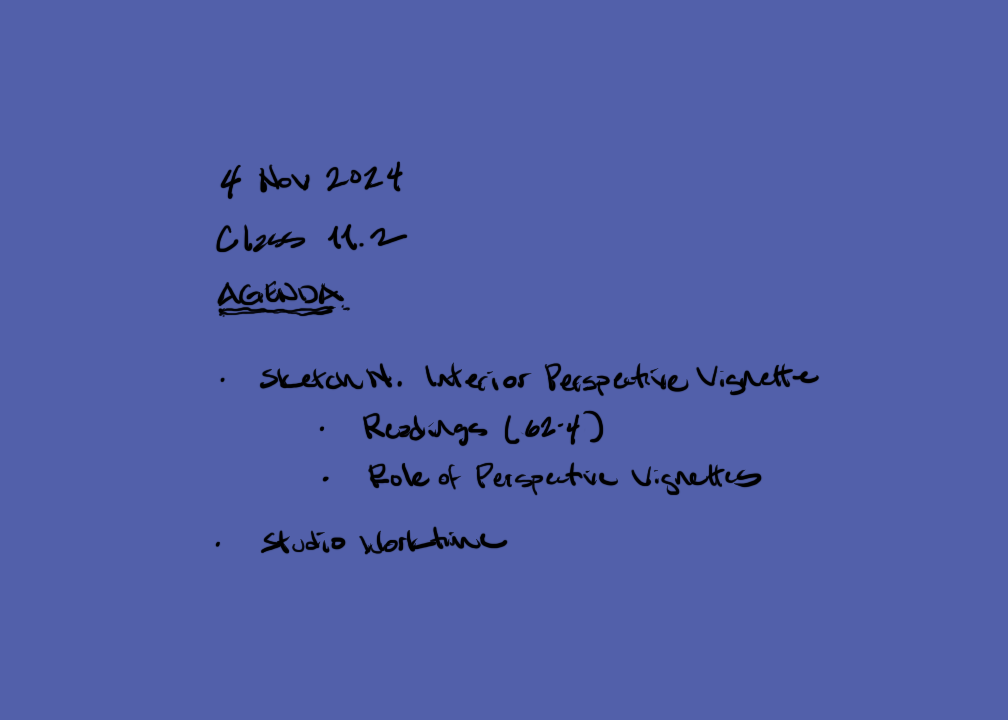 4 Nov 2024
Class 11.2
AGENDA
· Sketch N. Interior Perspective Vignette
· Readings (62-4)
· Role of Perspective Vignettes
· Studio Worktime